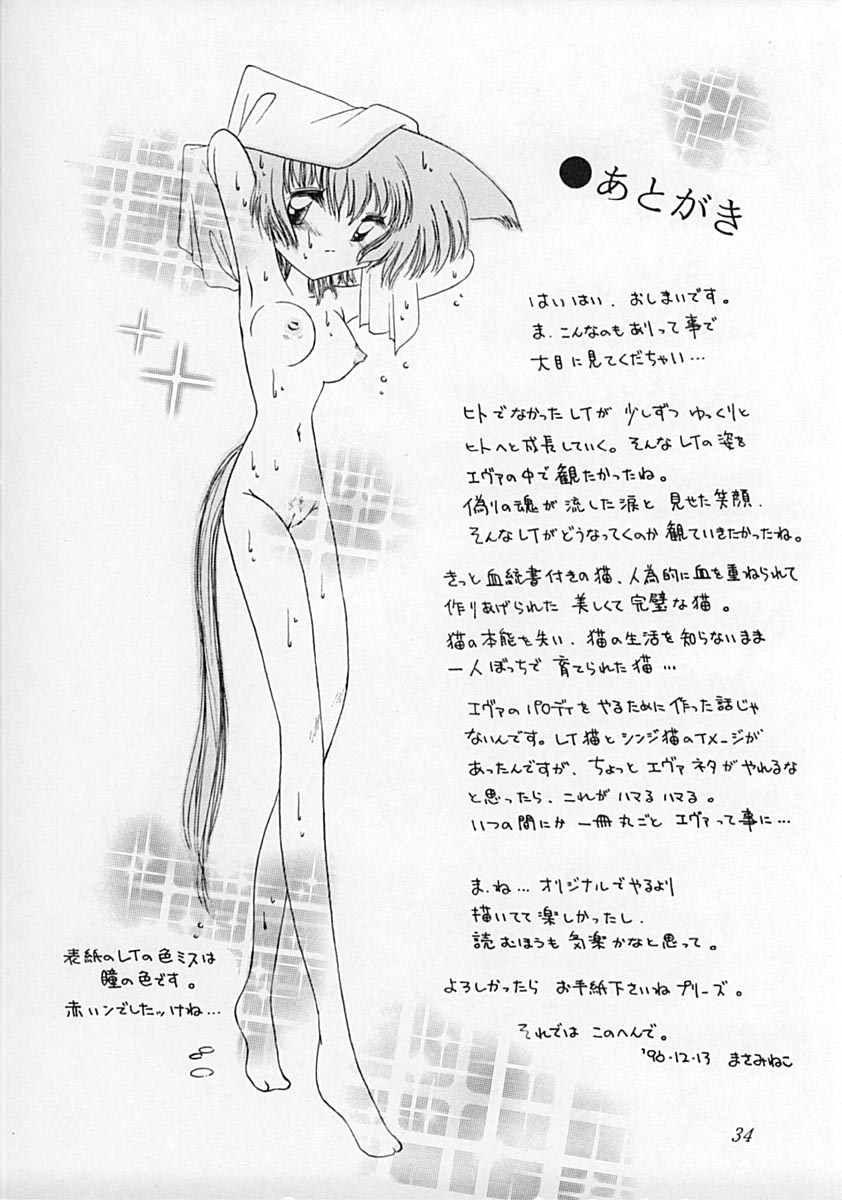 ●あとがき
はいはい、おしまいです。
ま、こんなのもありって事で
大目に見てくだちゃい…
ヒトでなかったレイが 少しずつ ゆっくりと
ヒトへと成長していく。そんなレイの姿を
エヴァの中で観たかったね。
偽りの魂が 流した涙と 見せた笑顔、
そんなレイがどうなってくのか 観ていきたかったね。
きっと血統書付きの猫、人為的に血を重ねられて
作りあげられた 美しくて完璧な猫。
猫の本能を失い、猫の生活を知らないまま
一人ぼっちで 育てられた猫…
エヴァのパロディをやるために作った話じゃ
ないんです。レイ猫とシンジ猫のイメージが
あったんですが、ちょっとエヴァネタがやれるな
と思ったら、これがハマるハマる。
いつの間にか 一冊丸ごと エヴァって事に…
ま、ね… オリジナルでやるより
描いてて楽しかったし、
読むほうも 気楽かなと思って。
よろしかったら お手紙下さいね プリーズ。
それでは このへんで。
'96.12.13 まさみねこ
表紙のレイの色ミスは
瞳の色です。
赤いンでしたッけね…
34